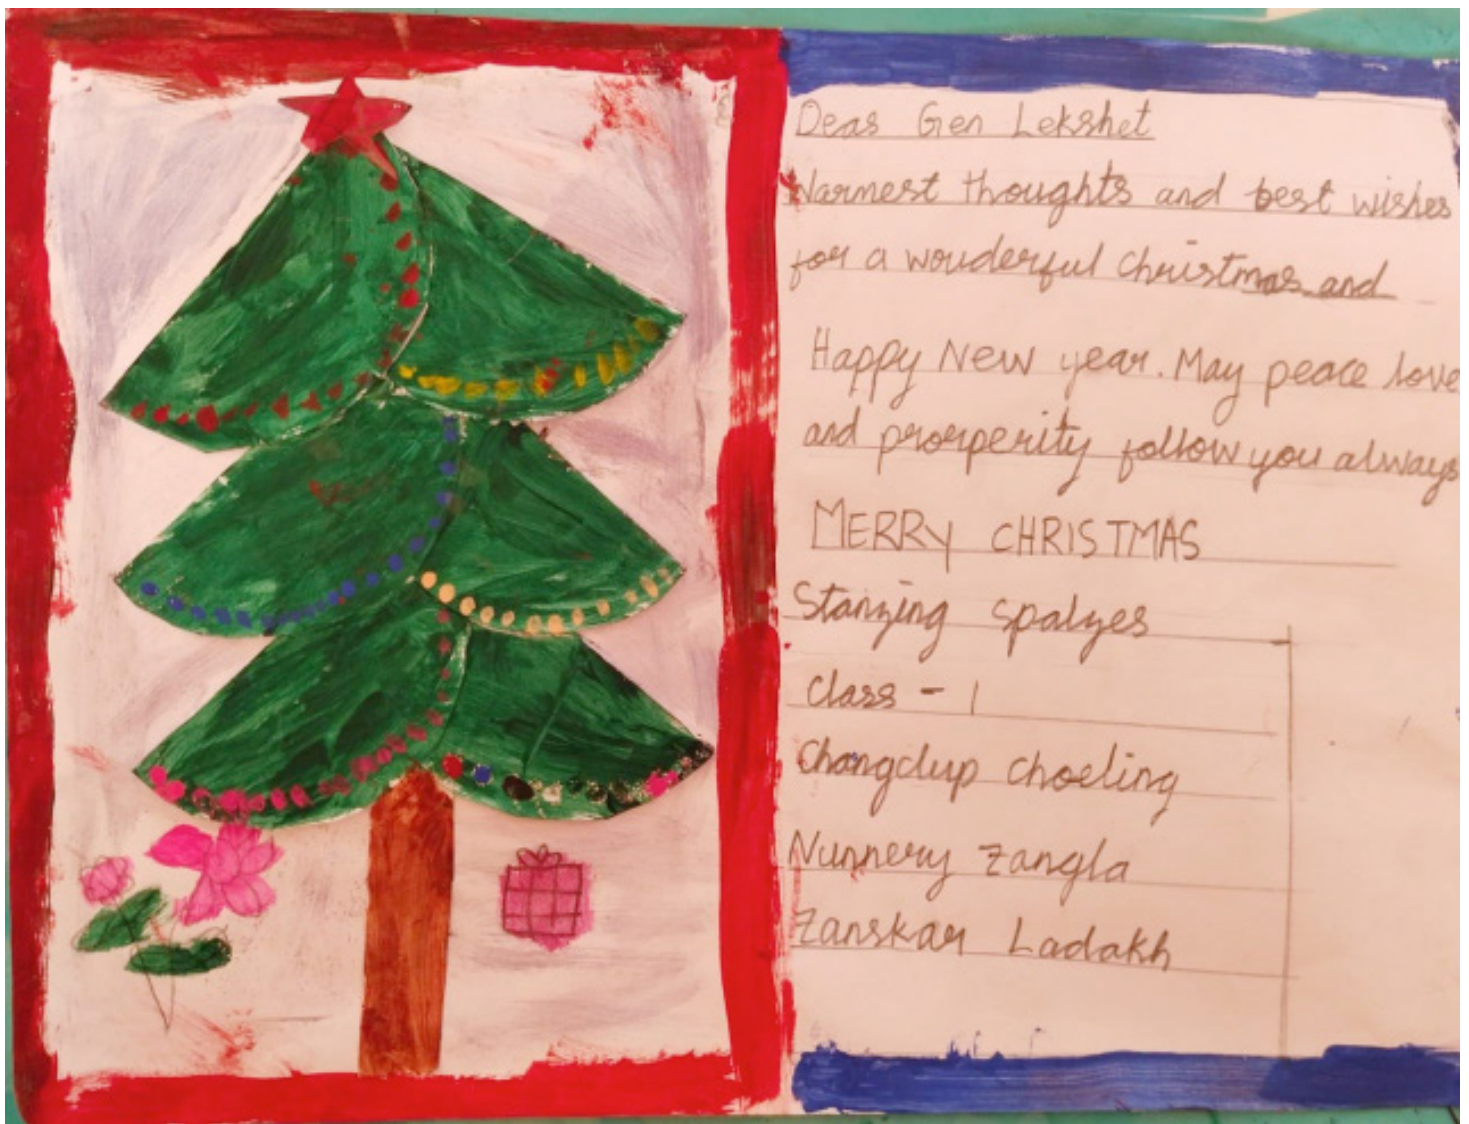 Dear Gen Lekshet
Warmest thoughts and best wishes
for a wouderful christmas and
Happy New year. May peace love
and prosperity follow you always
MERRY CHRISTMAS
Stanzing spalzes
class - 1
Changclup choeling
Nunnery zangla
Zanskar Ladakh